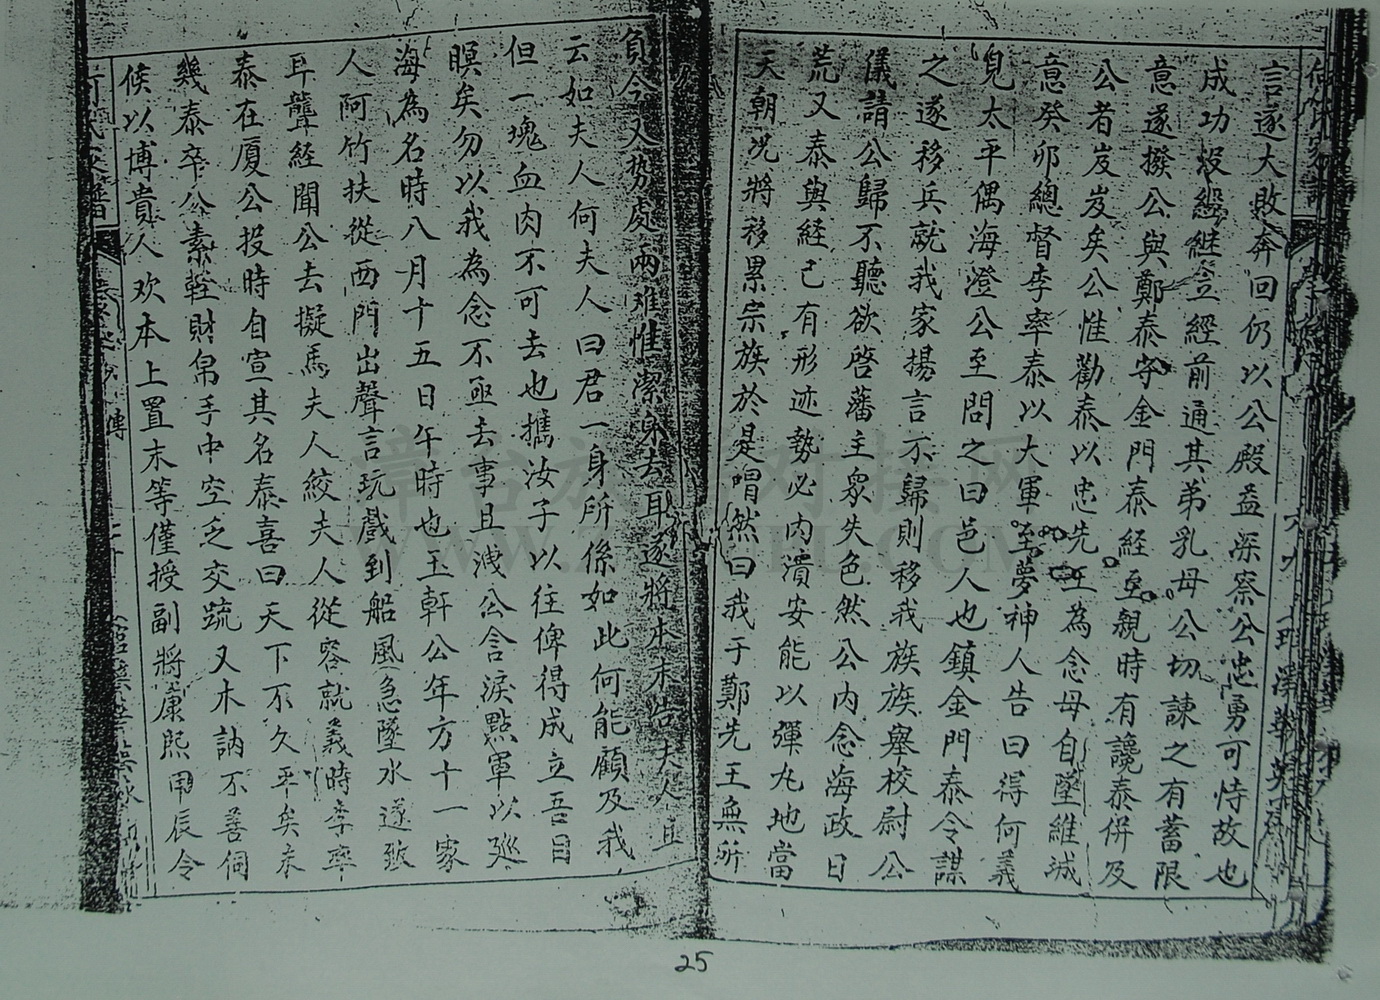 言遂大敗奔回仍以公殿益深察公忠勇可恃故也
成功歿經継立經前通其弟乳母公切諫之有蓄限
意遂撥公與鄭泰守金門泰經至親時有讒泰併及
公者岌岌矣公惟勸泰以忠先王為念母自墜維城
意癸卯總督李率泰以大軍至夢神人告曰得何義
皃太平偶海澄公至問之曰邑人也鎮金門泰令諜
之遂移兵就我家揚言不歸則移我族族舉校尉公
儀請公歸不聽欲啓藩主衆失色然公内念海政日
荒又泰與経已有形迹勢必内潰安能以彈丸地當
天朝况將移累宗族於是喟然曰我于鄭先王無所
負今又勢處兩难惟潔身去耳遂將本末告夫人且
云如夫人何夫人曰君一身所係如此何能顧及我
但一塊血肉不可去也攜汝子以往俾得成立吾目
瞑矣勿以我為念不亟去事且洩公含淚點軍以廵
海為名時八月十五日午時也玉軒公年方十一家
人阿竹扶從西門出聲言玩戲到船風急墜水遂致
耳聾經聞公去擬馬夫人絞夫人從容就義時李率
泰在厦公投時自宣其名泰喜曰天下不久平矣未
幾泰卒公素輕財帛手中空乏交䟽又木訥不善伺
候以博貴人欢本上置末等僅授副將康熙甲辰令
何氏家譜
25